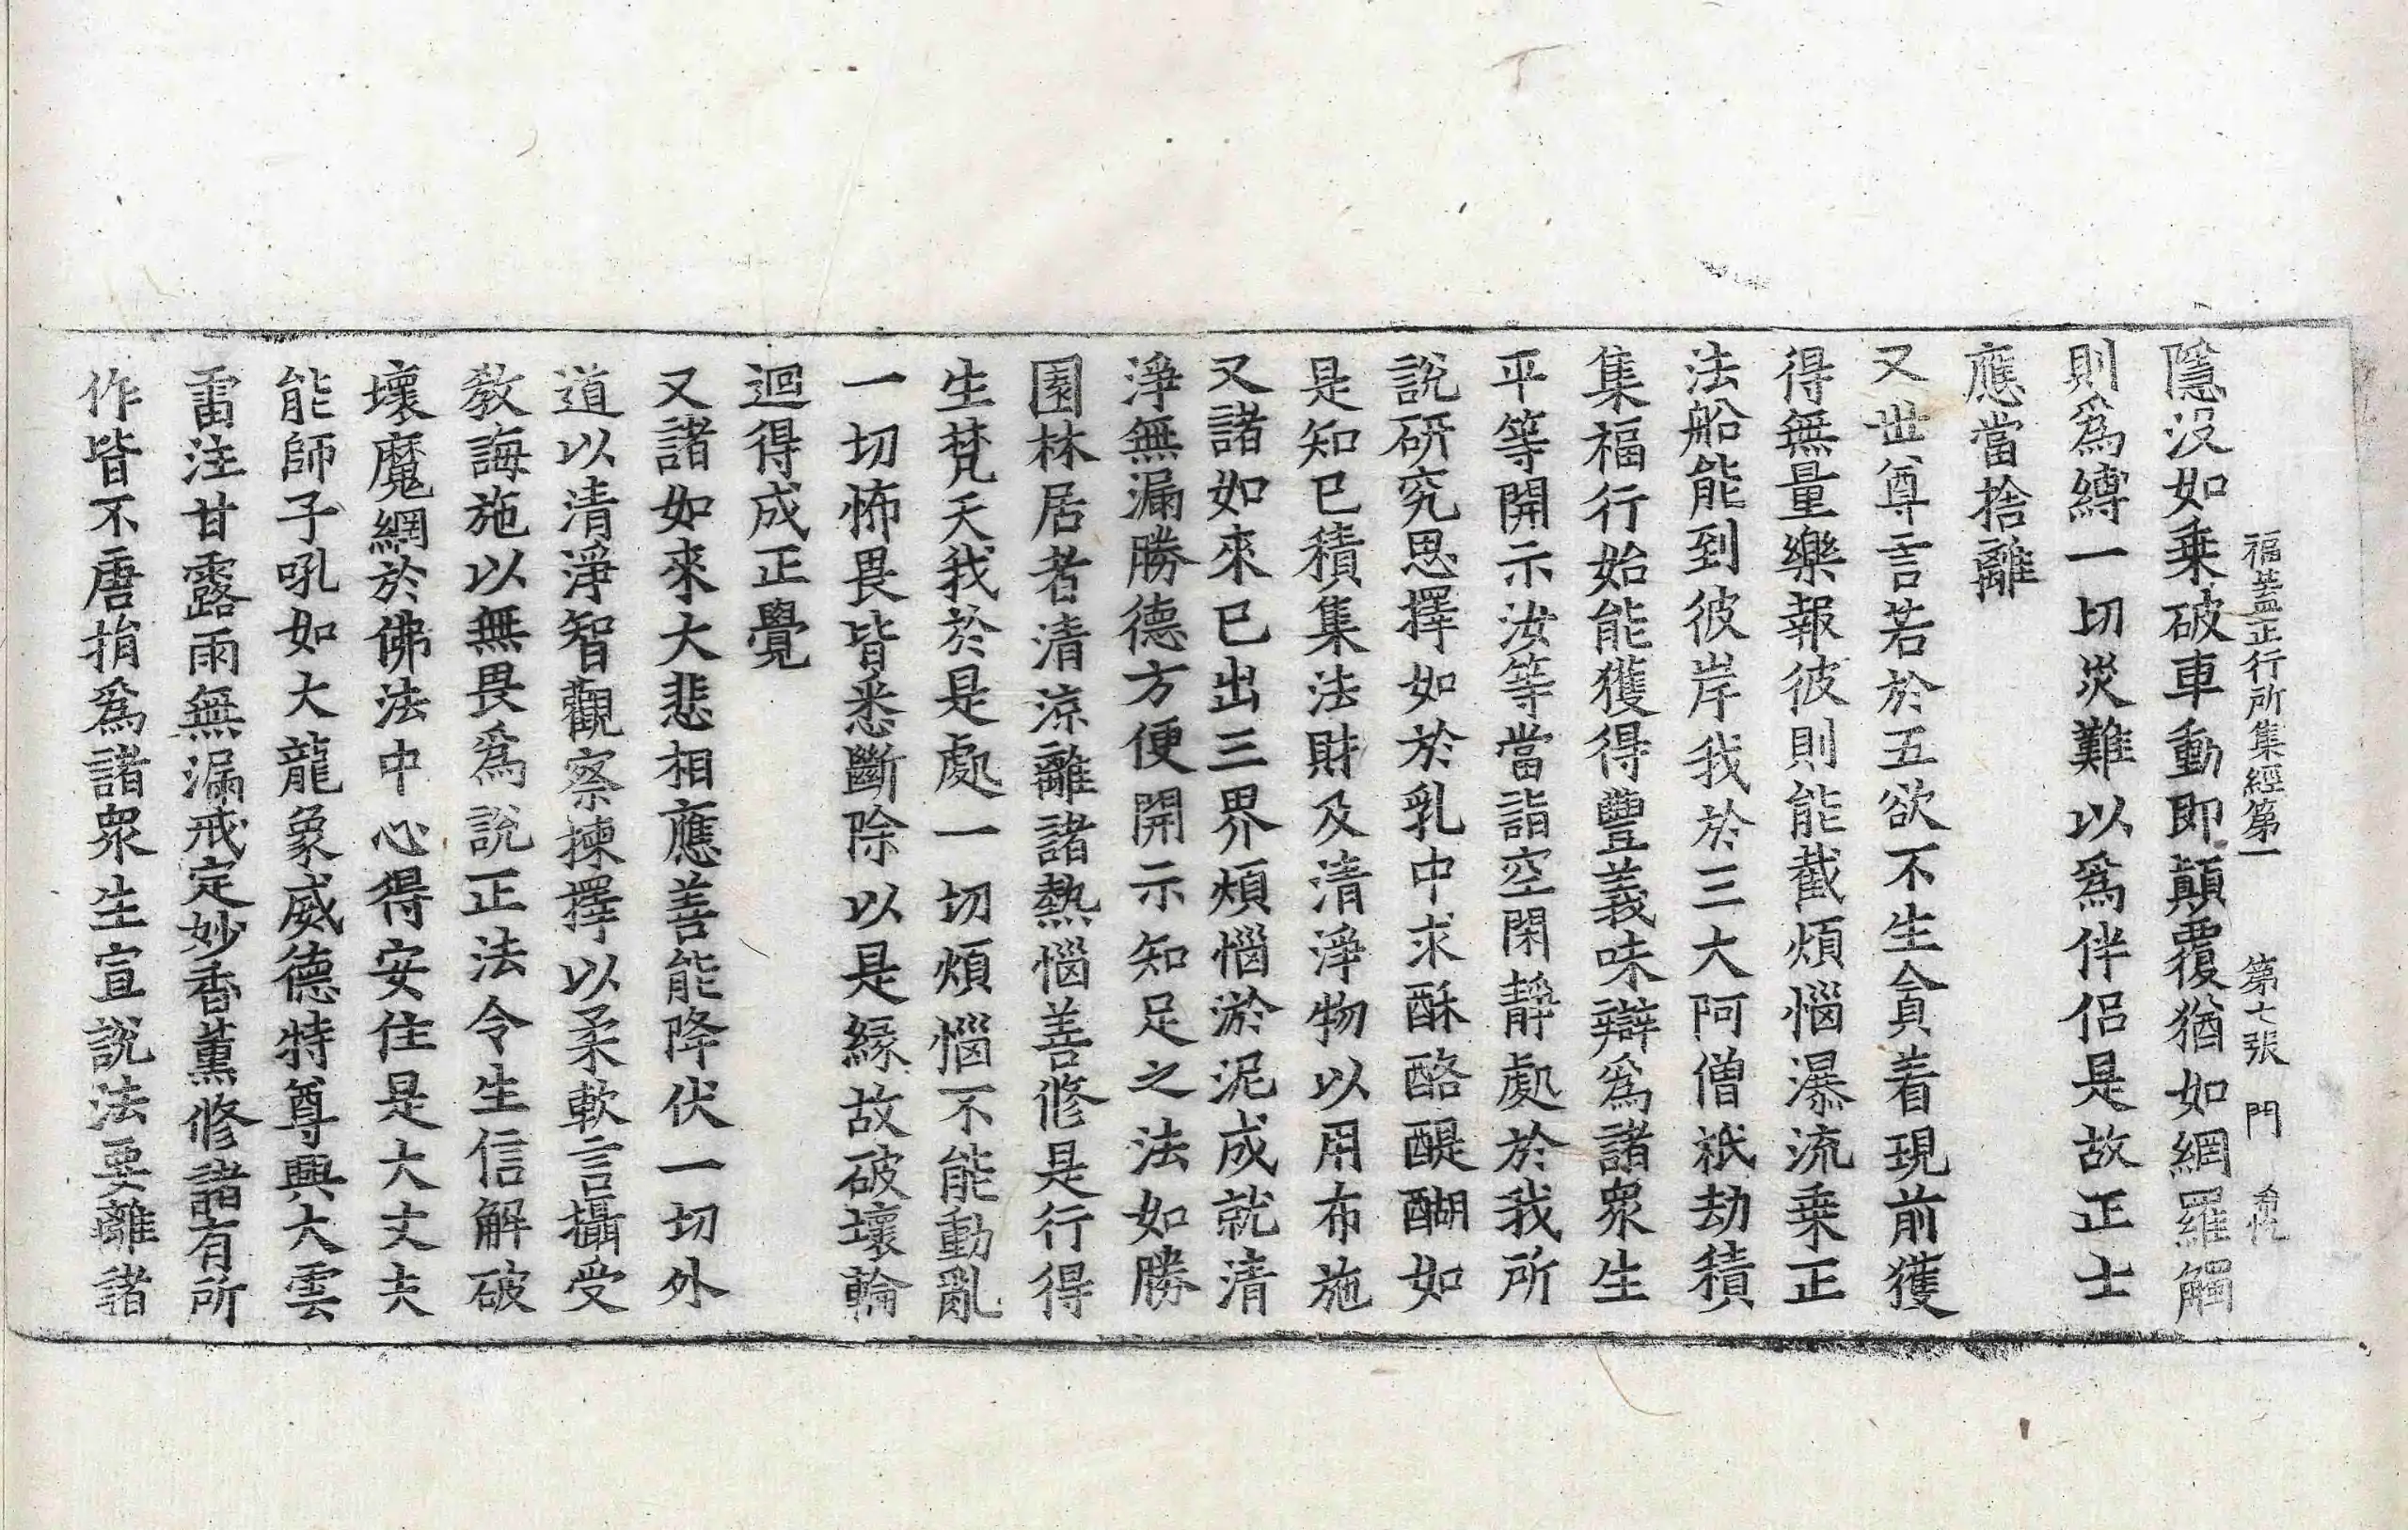 福蓋正行所集經第一 第七張 門
隱没如乗破車動即顛覆猶如網羅觸
則爲縛一切災難以爲伴侣是故正士
應當捨離
又世尊言若於五欲不生貪着現前獲
得無量樂報彼則能截煩惱瀑流乗正
法船能到彼岸我於三大阿僧祇劫積
集福行始能獲得豐義味辯爲諸衆生
平等開示汝等當詣空閑靜處於我所
說硏究思擇如於乳中求酥酪醍醐如
是知已積集法財及清淨物以用布施
又諸如來已出三界煩惱淤泥成就清
淨無漏勝德方便開示知足之法如勝
園林居者清涼離諸熱惱善修是行得
生梵天我於是處一切煩惱不能動亂
一切怖畏皆悉斷除以是緣故破壞輪
迴得成正覺
又諸如來大悲相應善能降伏一切外
道以清淨智觀察揀擇以柔軟言攝受
敎誨施以無畏爲說正法令生信解破
壞魔網於佛法中心得安住是大丈夫
能師子吼如大龍象威德特尊興大雲
雷注甘露雨無漏戒定妙香薰修諸有所
作皆不唐捐爲諸衆生宣說法要離諸